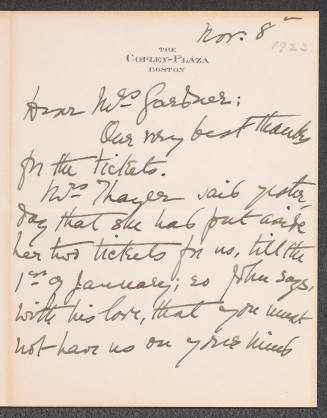 Nov. 8th
1922
THE
COPLEY-PLAZA
BOSTON
Dear Mrs Gardner:
Our very best thanks
for the tickets.
Mrs Thayer said yester
day that she had put aside
her two tickets for us, till the
1st of January; so John says,
with his love, that you must
not have us on your mind